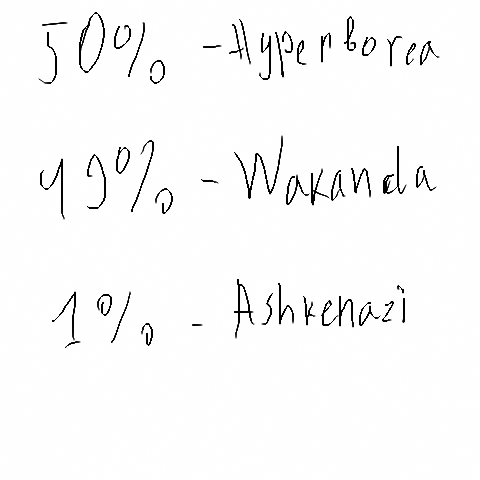 50% - Hyperborea
49% - Wakanda
1% - Ashkenazi